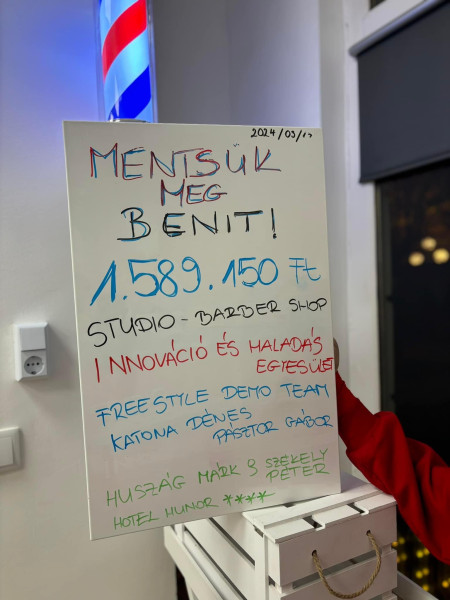 2024/03/17
MENTSÜK
MEG
BENIT!
1.589.150 Ft
STUDIO - BARBER SHOP
INNOVÁCIÓ ÉS HALADÁS
EGYESÜLET
FREESTYLE DEMO TEAM
KATONA DÉNES
PÁSZTOR GÁBOR
HUSZÁG MÁRK & SZÉKELY
PÉTER
HOTEL HUNOR ****